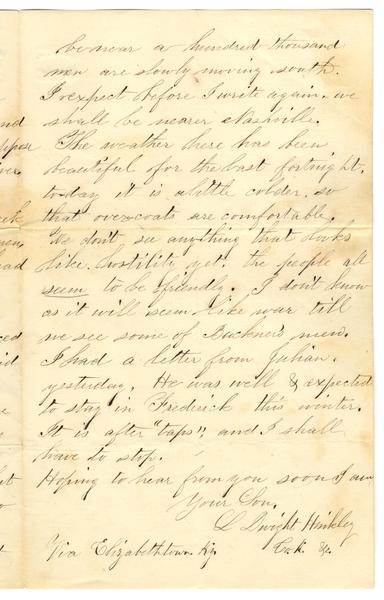 be near a hundred thousand
men are slowly moving south.
I expect before I write again, we
shall be nearer Nashville.
The weather here has been
beautiful for the last fortnight.
to day it is a little colder, so
that overcoats are comfortable.
We don't see anything that looks
like hostility yet. the people all
seem to be friendly. I don't know
as it will seem like war till
we see some of Buckner's men.
I had a letter from Julian.
yesterday. He was well & expected
to stay in Frederick this winter.
It is after "taps", and I shall
have to stop.
Hoping to hear from you soon I am
Your Son.
L Dwight Hinkley
Via Elizabethtown Ky. Co. K. &c.